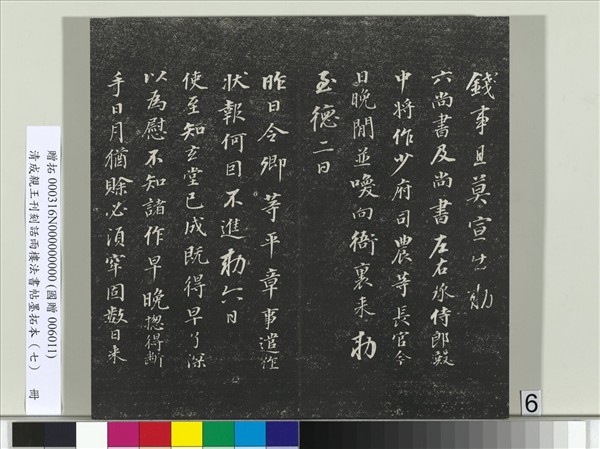 錢事且莫宣出勅
六尚書及尚書左右丞侍郎殿
中將作少府司農等長官今
日晚閒並喚向衙裏来勅
至德二日
昨日令卿等平章事遣
狀報何因不進勅六日
使至知玄堂已成既得早了深
以為慰不知諸作早晚揔得斷
手日月猶賒必須牢固數日来
贈拓 000316N000000000 (國贈 006011)
清成親王刊刻話雨樓法書帖墨拓本（七） 冊
6